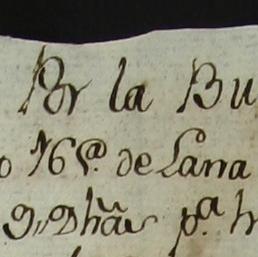 Por la Bu
o 16 @. de Lana
9,, Dhãs p.ª h